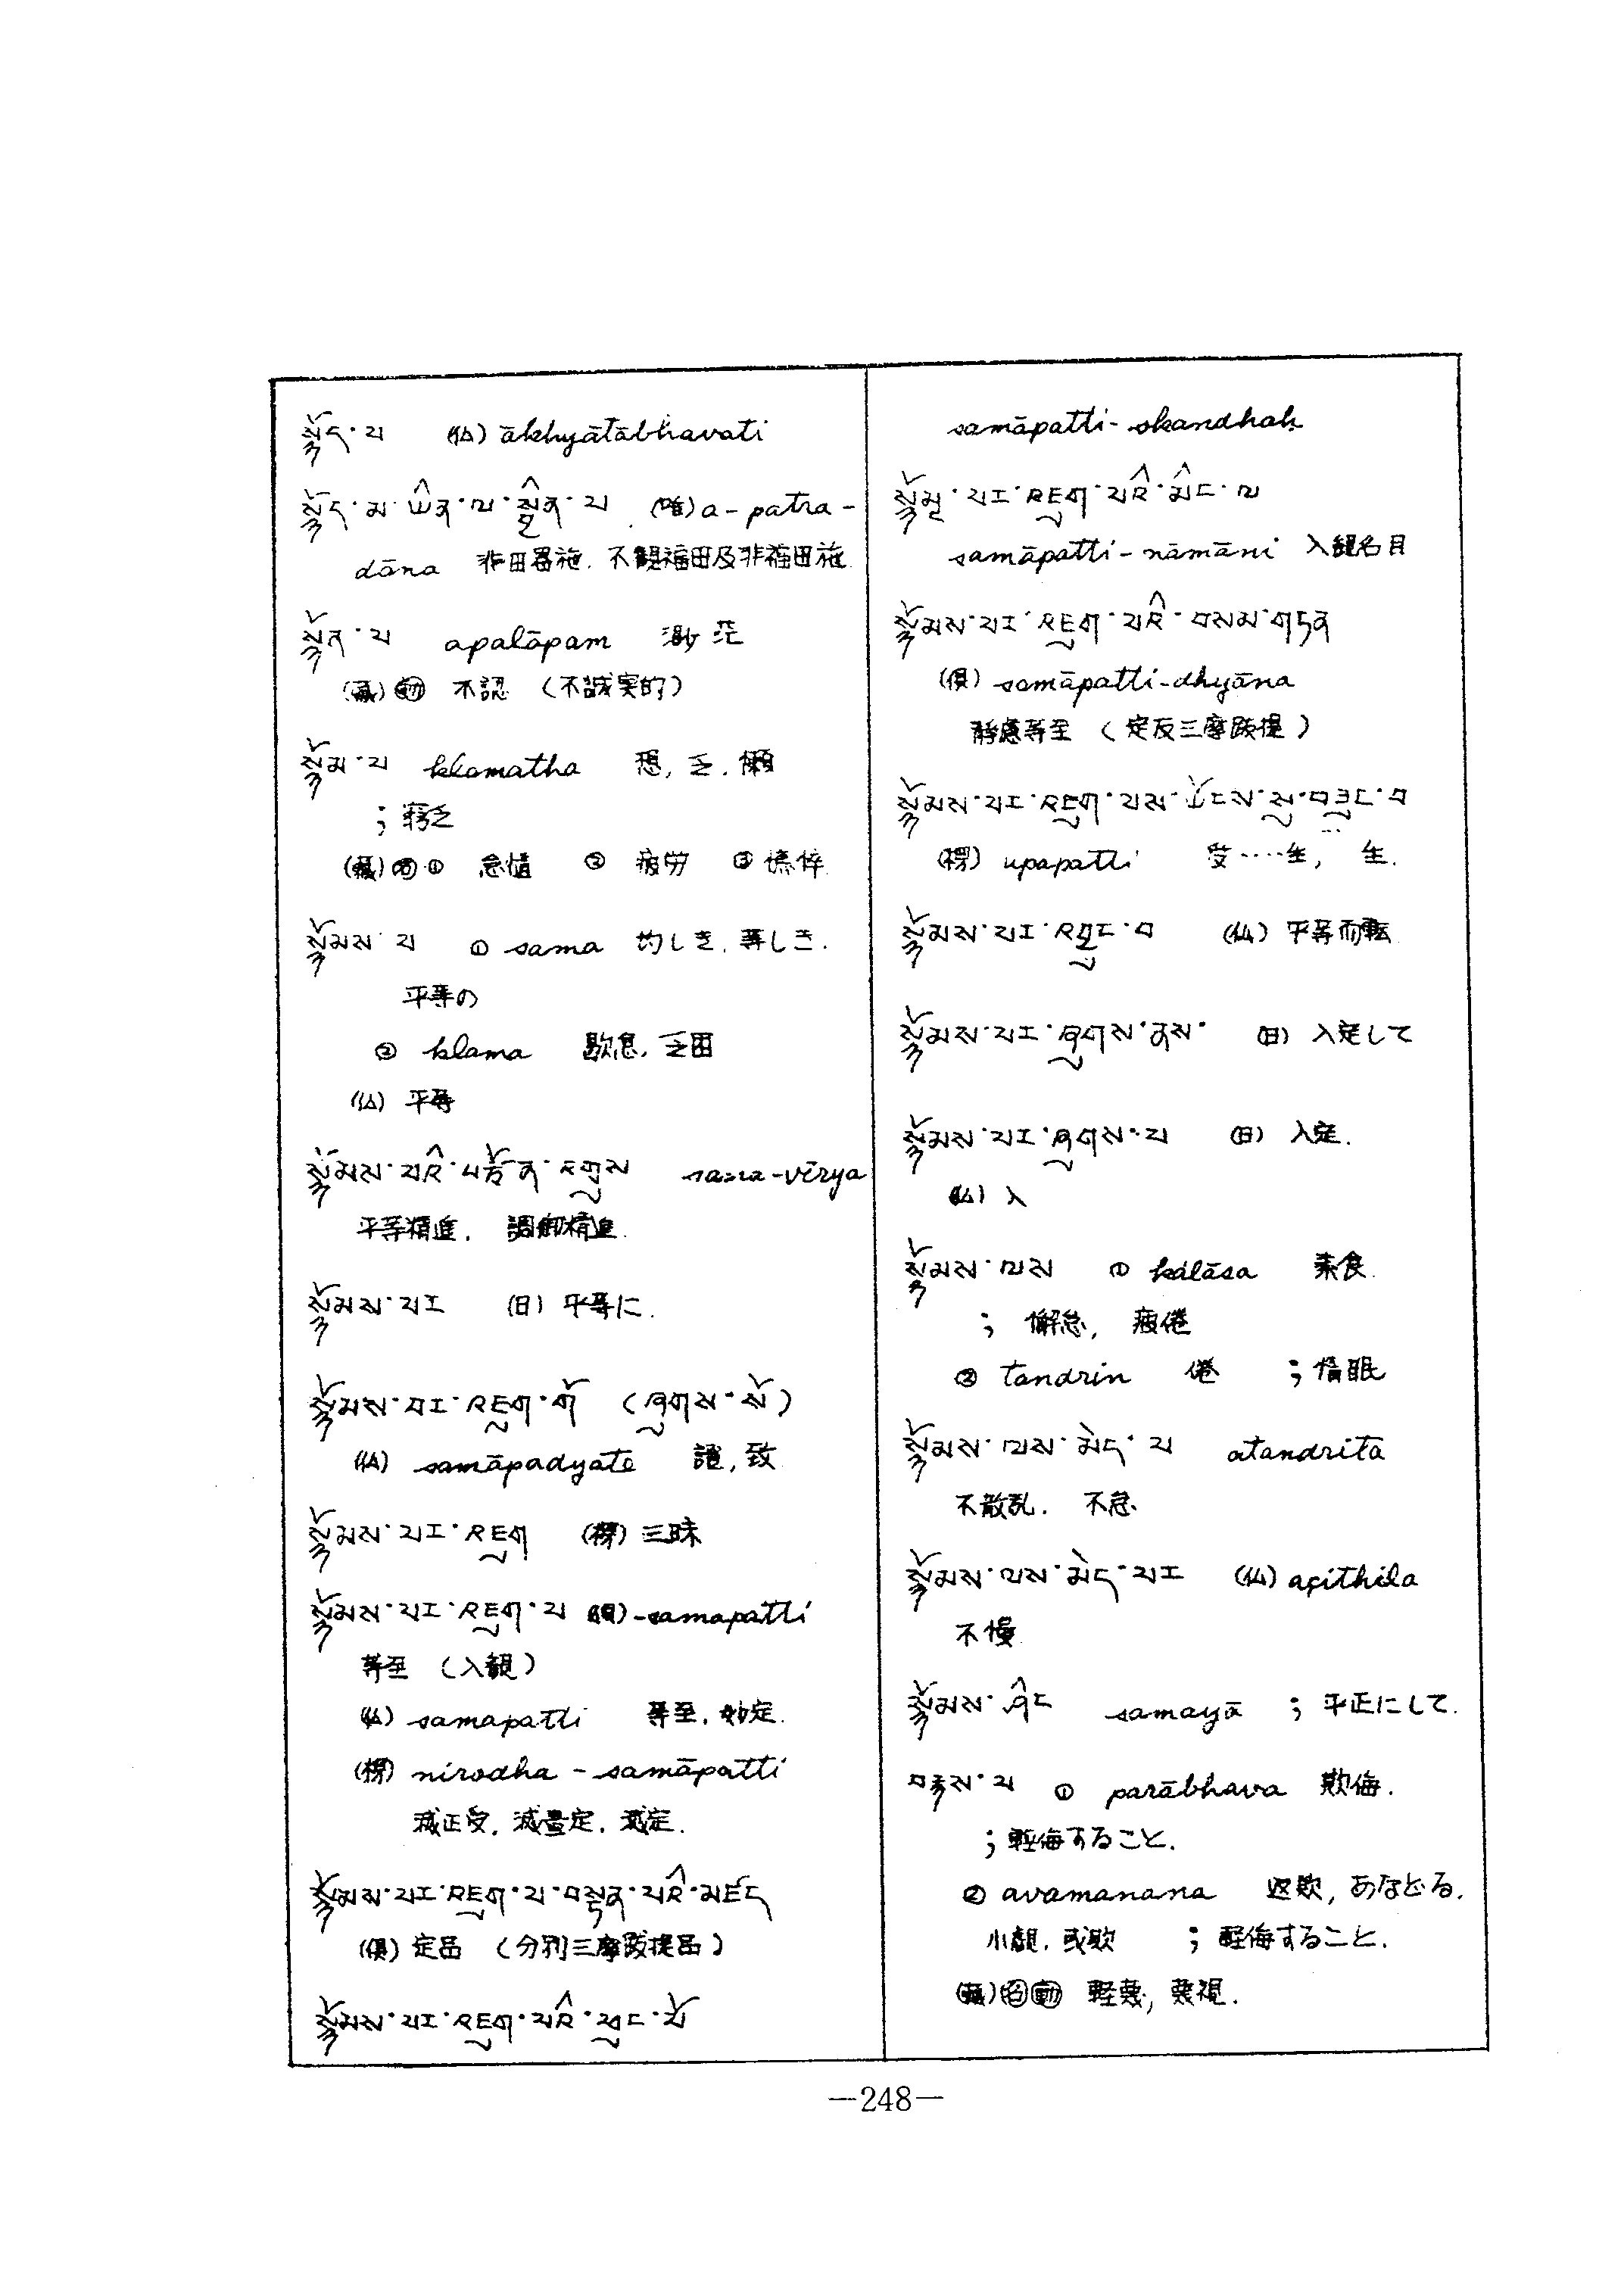 སྙོད་པ (仏) ākhyātābhavati
སྙོད་མ་ཡིན་ལ་སྦྱིན་པ (唯) a-patra-
dāna 非田器施. 不観福田及非福田施.
སྙོན་པ apalāpam
(蔵) 動 不認 (不誠実的)
སྙོམ་པ klamatha 想, 乏. 懶
; 窮乏
(蔵) ① 怠惰 ② 疲労 ③ 憔悴
སྙོམས་པ ① sama 均しき. 等しき.
平等の
② klama 歇息. 乏困
(仏) 平等
སྙོམས་པའི་བརྩོན་འགྲུས sama-vīrya
平等精進. 調御精進.
སྙོམས་པར (日) 平等に.
སྙོམས་པར་འཇུག་གོ (ཞུགས་སོ)
(仏) samāpadyate 證, 致
སྙོམས་པར་འཇུག (楞) 三昧
སྙོམས་པར་འཇུག་པ (倶) -samapatti
等至 (入観)
(仏) samapatti 等至. 妙定.
(楞) nirodha - samāpatti
滅正受. 滅盡定. 滅定.
སྙོམས་པར་འཇུག་པ་བསྟན་པའི་མཛོད
(倶) 定品 (分別三摩跋提品)
སྙོམས་པར་འཇུག་པའི་ཕུང་པོ
samāpatti-skandhaḥ
པར་འཇུག་པའི་མིང་ལ
samāpatti-nāmāni 入観名目
སྙོམས་པར་འཇུག་པའི་བསམ་གཏན
(倶) samāpatti-dhyāna
静慮等至 (定反三摩跋提)
སྙོམས་པར་འཇུག་པས་ཡོངས་སུ་བཟུང་བ
(楞) upapatti 受‥‥生, 生.
སྙོམས་པར་འབྱུང་བ (仏) 平等而転
སྙོམས་པར་ཞུགས་ནས་ (日) 入定して
སྙོམས་པར་ཞུགས་པ (日) 入定.
(仏) 入
སྙོམས་ལས ① kálāsa 素食.
; 懈怠, 疲倦
② tandrin 倦 ; 惰眠
སྙོམས་ལས་མེད་པ atandritā
不散乱. 不怠.
སྙོམས་ལས་མེད་པར (仏) açithila
不慢.
སྙོམས་ཤིང samayā ; 平正にして.
བརྙས་པ ① parābhava 欺侮.
; 軽侮すること.
② avamanana 欺, あなどる.
小觀. 或欺 ; 軽侮すること.
(蔵) 名 動 軽蔑, 蔑視.
—248—